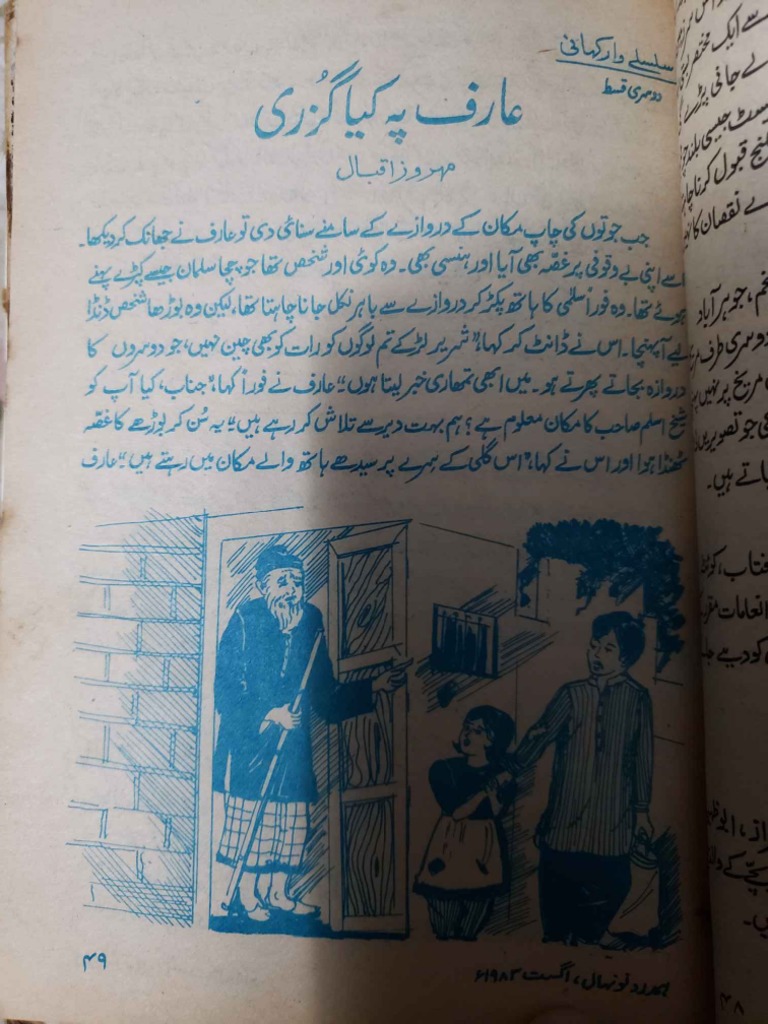 سلسلے وار کہانی
دوسری قسط
عارف پہ کیا گزری
مہروز اقبال
جب جوتوں کی چاپ مکان کے دروازے کے سامنے سنائی دی تو عارف نے جھانک کر دیکھا۔
اسے اپنی بے وقوفی پر غصّہ بھی آیا اور ہنسی بھی۔ وہ کوئی اور شخص تھا جو چچا سلمان جیسے کپڑے پہنے
ہوئے تھا۔ وہ فوراً سلمٰی کا ہاتھ پکڑ کر دروازے سے باہر نکل جانا چاہتا تھا، لیکن وہ بوڑھا شخص ڈنڈا
لیے آ پہنچا۔ اس نے ڈانٹ کر کہا، "شریر لڑکے تم لوگوں کو رات کو بھی چین نہیں، جو دوسروں کا
دروازہ بجاتے پھرتے ہو۔ میں ابھی تمھاری خبر لیتا ہوں" عارف نے فوراً کہا، "جناب، کیا آپ کو
شیخ اسلم صاحب کا مکان معلوم ہے؟ ہم بہت دیر سے تلاش کر رہے ہیں" یہ سُن کر بوڑھے کا غصّہ
ٹھنڈا ہوا اور اس نے کہا، "اس گلی کے سرے پر سیدھے ہاتھ والے مکان میں رہتے ہیں" عارف
ہمدرد نونہال، اگست ۱۹۸۲ء
۴۹
سے ایک مختصر
لے جانی پڑے
جیسی بلند
قبول کرنا
نقصان کا
جوہر آباد
دوسری طرف
مریخ پر نہیں
جو تصویریں
جاتے ہیں۔
انعامات
کو دیے
۴۸